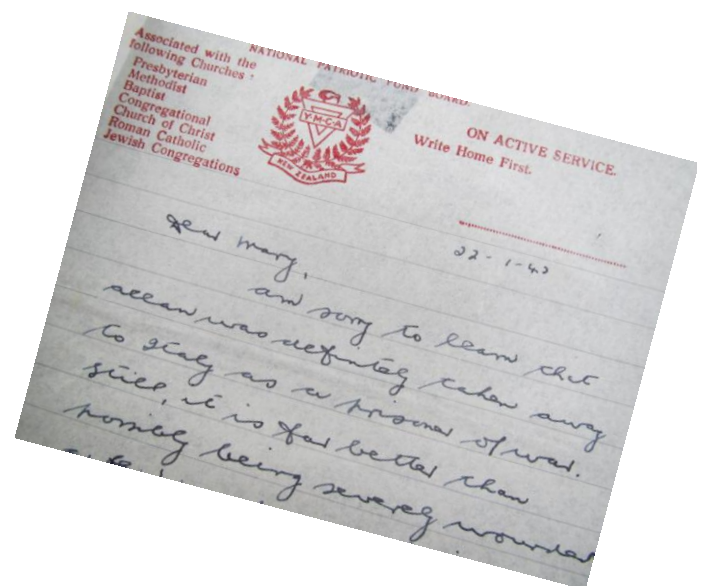 NATIONAL PATRIOTIC FUND BOARD
Associated with the
following Churches :
Presbyterian
Methodist
Baptist
Congregational
Church of Christ
Roman Catholic
Jewish Congregations
Y·M·C·A
NEW ZEALAND
ON ACTIVE SERVICE.
Write Home First.
22-1-42
Dear Mary,
am sorry to learn that
allan was definitely taken away
to Italy as a prisoner of war.
Still, it is far better than
possibly being severely wounded